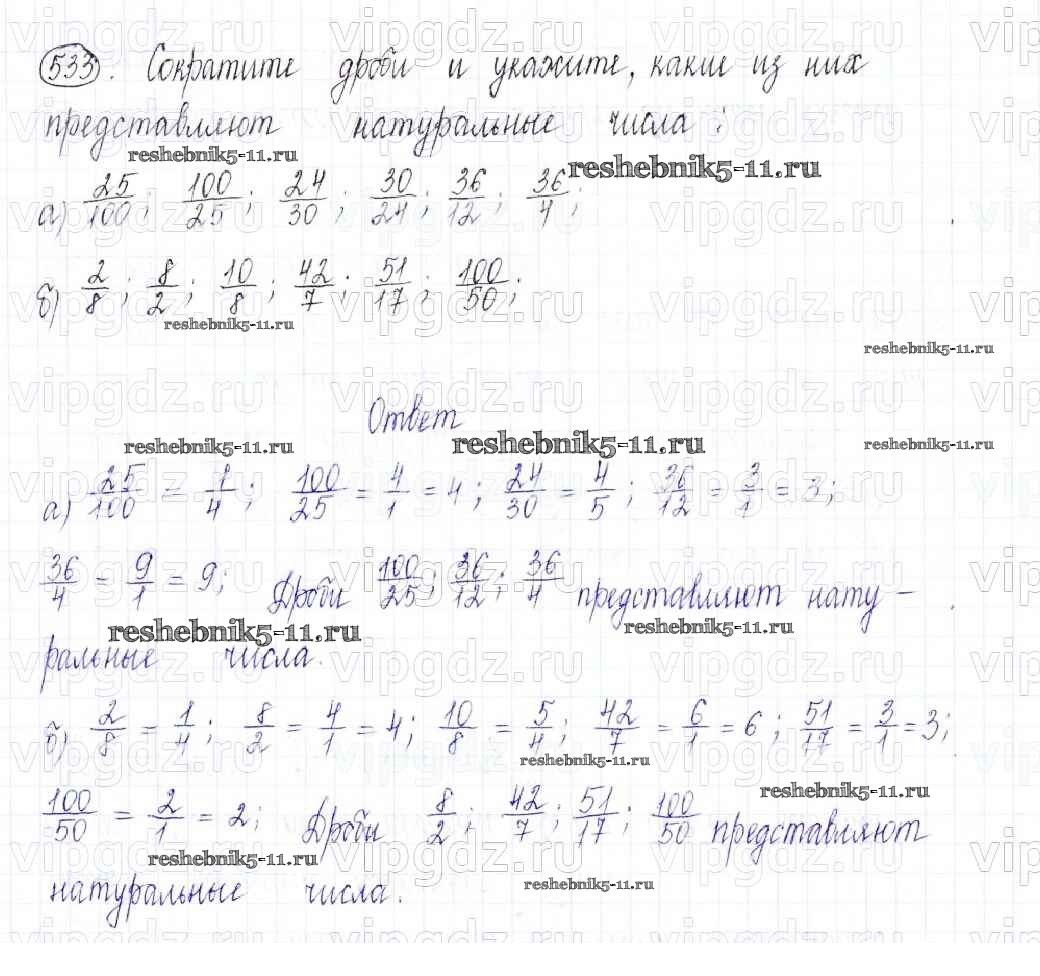 533. Сократите дроби и укажите, какие из них
представляют натуральные числа:
reshebnik5-11.ru reshebnik5-11.ru
а) 25/100; 100/25; 24/30; 30/24; 36/12; 36/4;
б) 2/8; 8/2; 10/8; 42/7; 51/17; 100/50;
reshebnik5-11.ru
reshebnik5-11.ru
Ответ
reshebnik5-11.ru reshebnik5-11.ru reshebnik5-11.ru
а) 25/100 = 1/4; 100/25 = 4/1 = 4; 24/30 = 4/5; 36/12 = 3/1 = 3;
36/4 = 9/1 = 9; Дроби 100/25; 36/12; 36/4 представляют нату-
reshebnik5-11.ru reshebnik5-11.ru
ральные числа.
б) 2/8 = 1/4; 8/2 = 4/1 = 4; 10/8 = 5/4; 42/7 = 6/1 = 6; 51/17 = 3/1 = 3;
reshebnik5-11.ru
reshebnik5-11.ru
100/50 = 2/1 = 2; Дроби 8/2; 42/7; 51/17; 100/50 представляют
reshebnik5-11.ru
reshebnik5-11.ru
натуральные числа.
vipgdz.ru